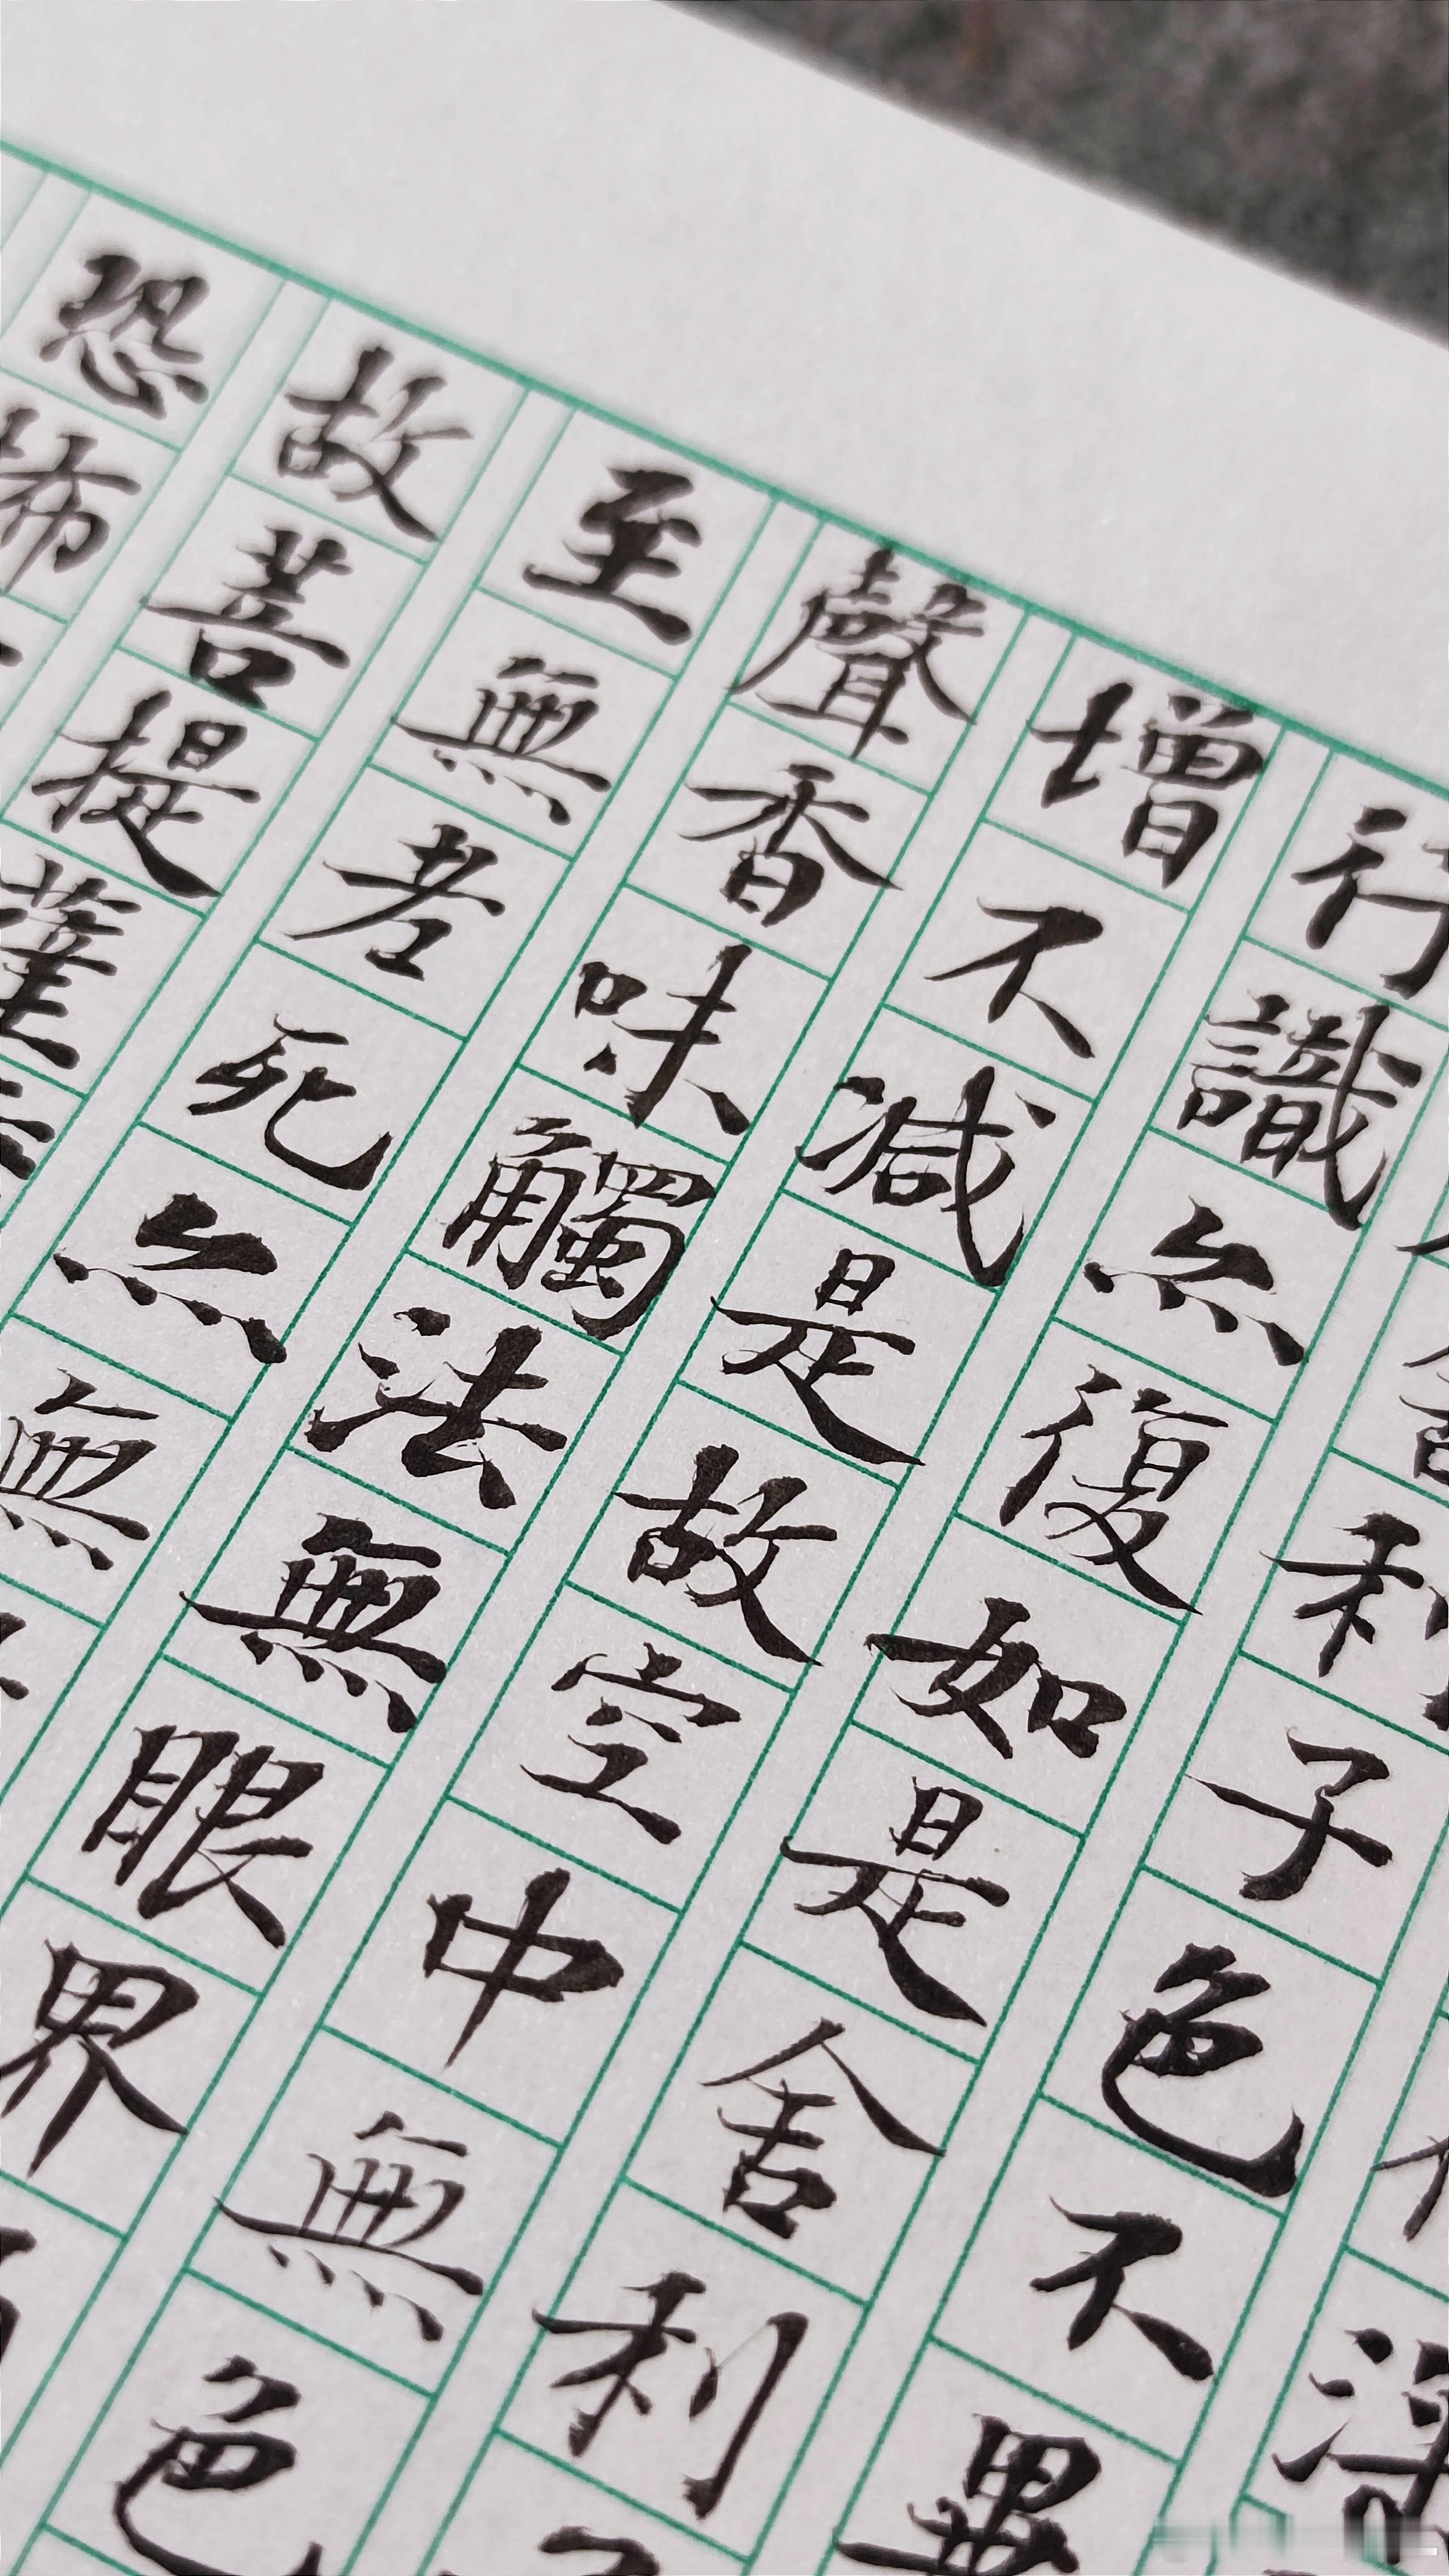 利子色不異
行識亦復如是舍利
增不減是故空中無色
聲香味觸法無眼界
至無老死亦無
故菩提薩
恐怖